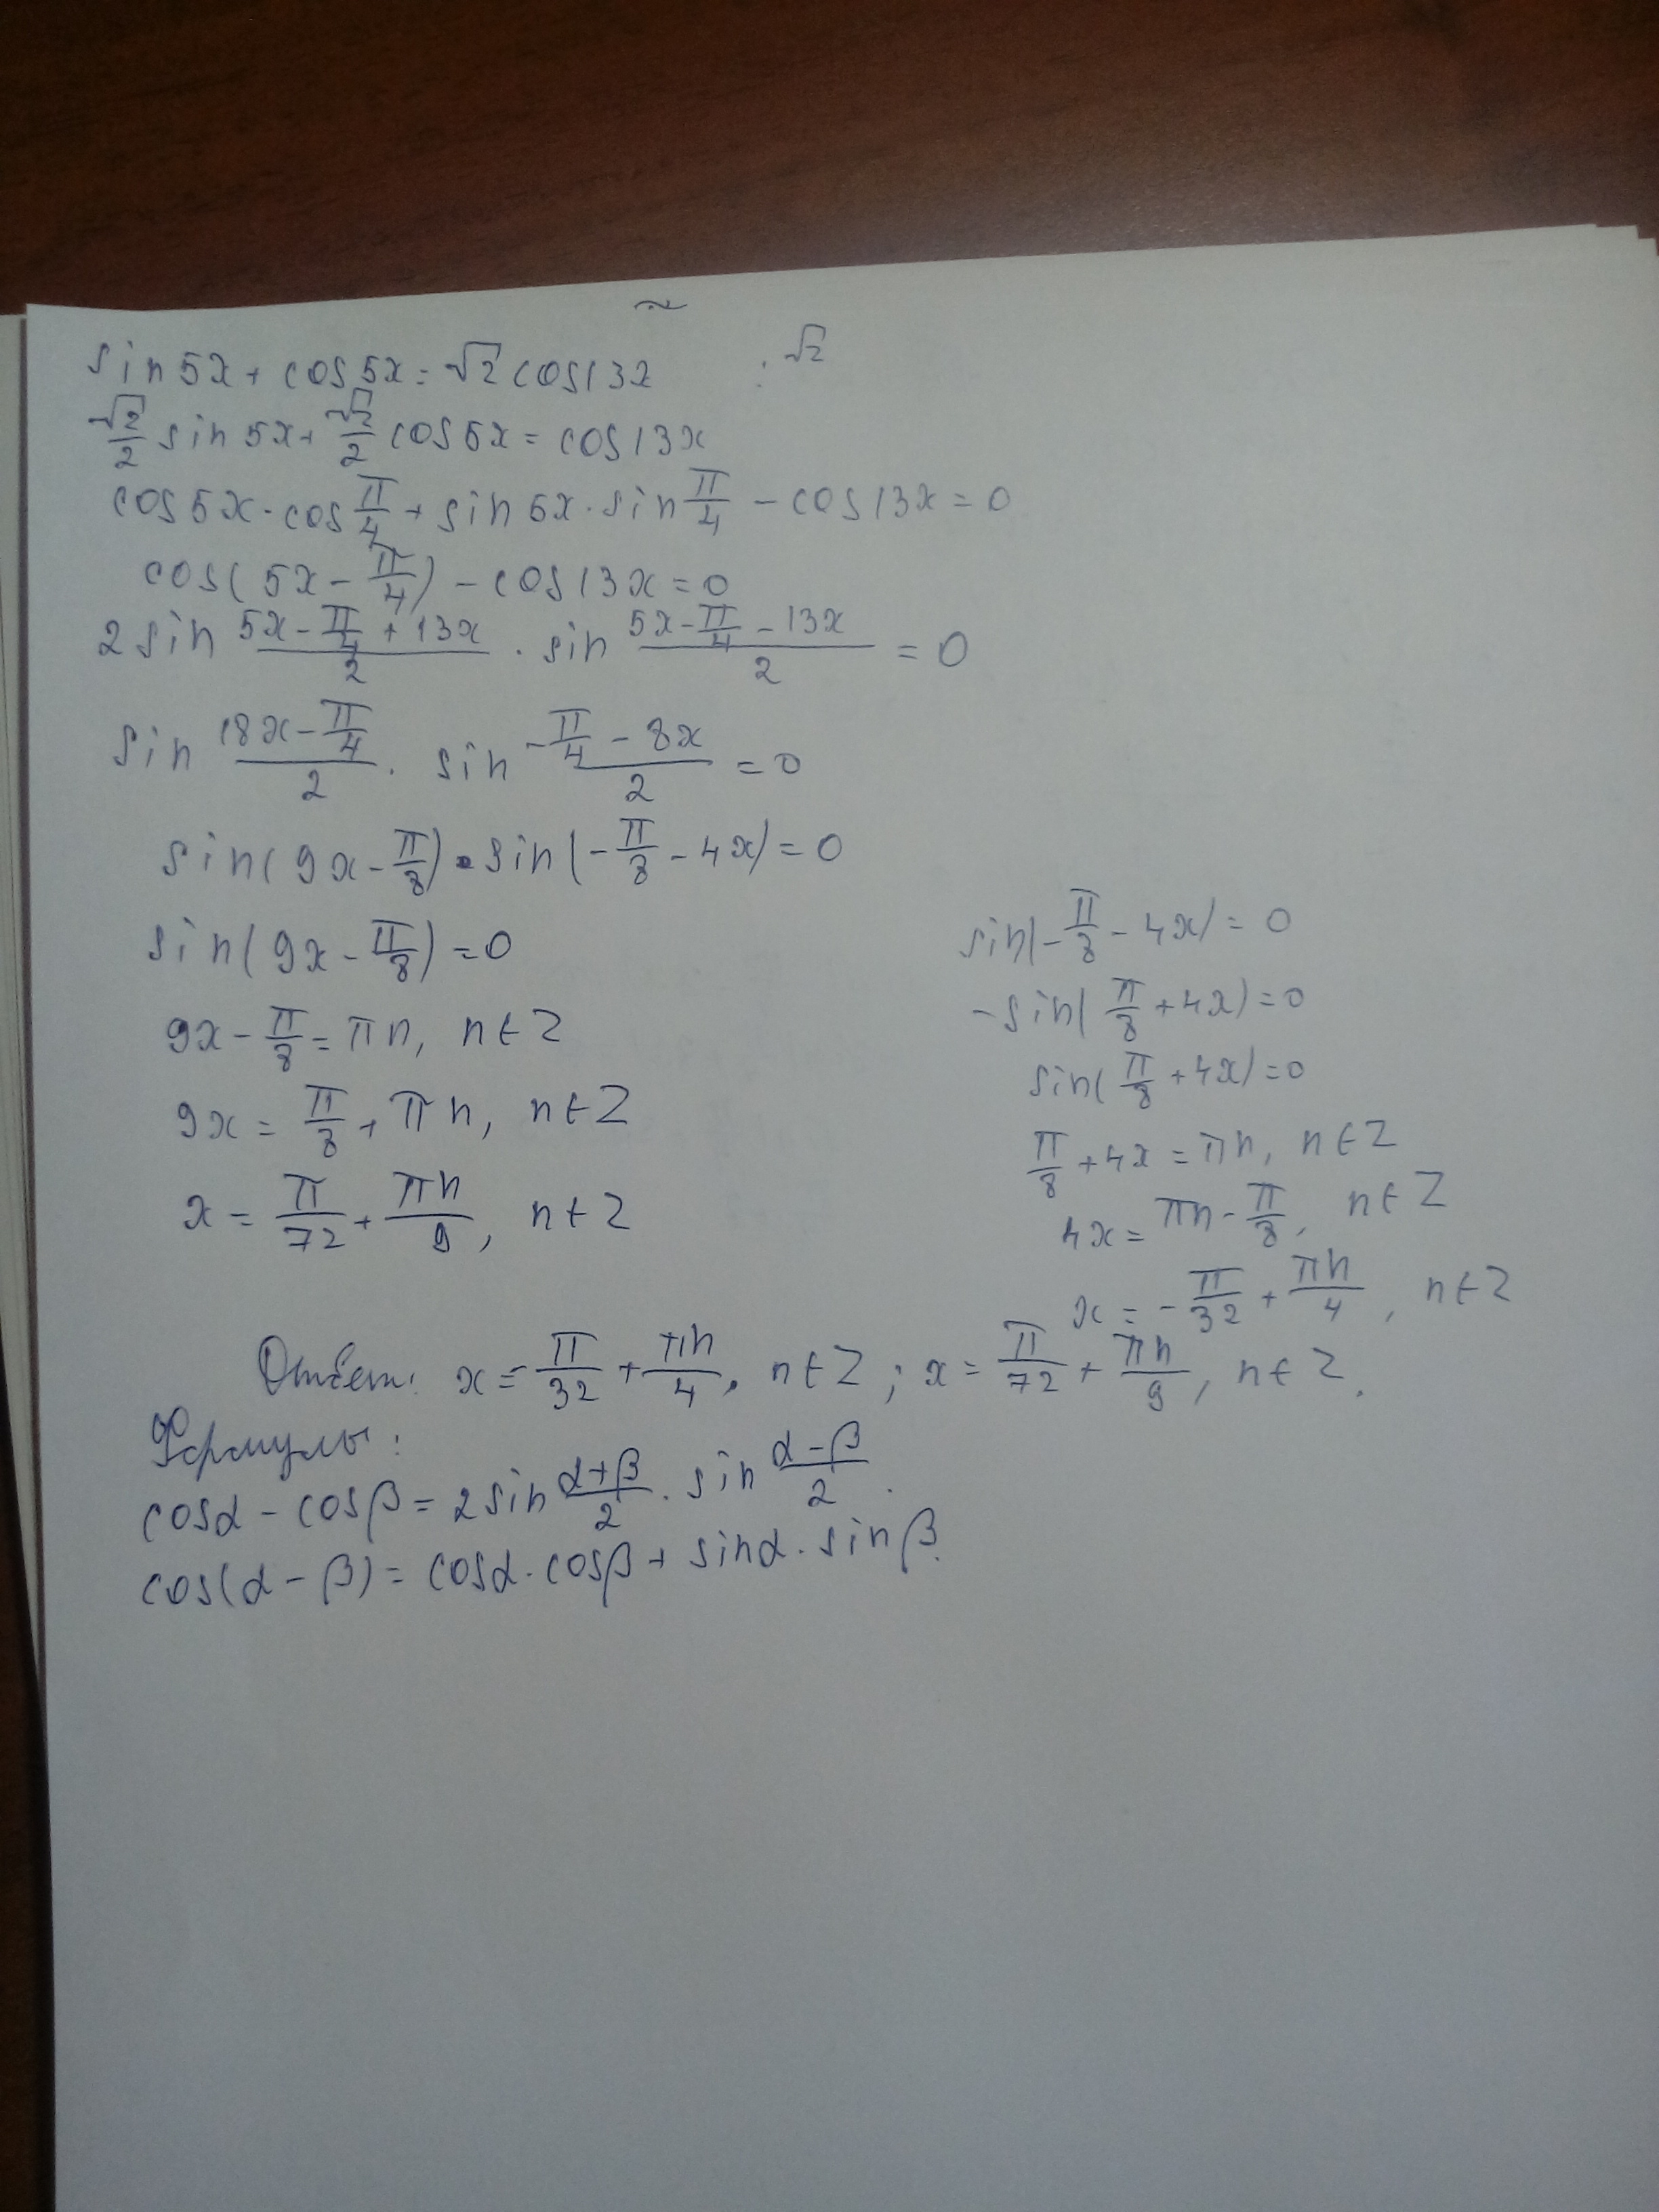 sin5x + cos5x = √2 cos13x : √2
√2/2 sin5x + √2/2 cos5x = cos13x
cos5x · cos π/4 + sin5x · sin π/4 - cos13x = 0
cos(5x - π/4) - cos13x = 0
2 sin (5x - π/4 + 13x)/2 · sin (5x - π/4 - 13x)/2 = 0
sin (18x - π/4)/2 · sin (-π/4 - 8x)/2 = 0
sin(9x - π/8) · sin(-π/8 - 4x) = 0
sin(9x - π/8) = 0
9x - π/8 = πn, n∈Z
9x = π/8 + πn, n∈Z
x = π/72 + πn/9, n∈Z
sin(-π/8 - 4x) = 0
-sin(π/8 + 4x) = 0
sin(π/8 + 4x) = 0
π/8 + 4x = πn, n∈Z
4x = πn - π/8, n∈Z
x = -π/32 + πn/4, n∈Z
Ответ: x = -π/32 + πn/4, n∈Z; x = π/72 + πn/9, n∈Z.
Формулы:
cosα - cosβ = 2 sin (α+β)/2 · sin (α-β)/2.
cos(α - β) = cosα · cosβ + sinα · sinβ.